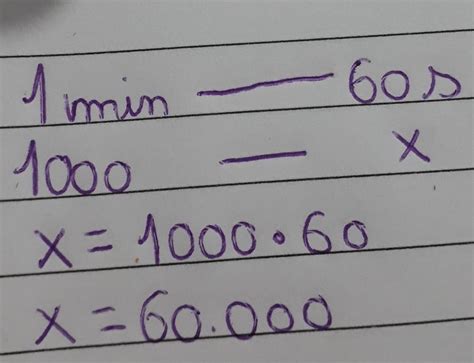 1 min — 60 s
1000 — x
x = 1000 · 60
x = 60.000